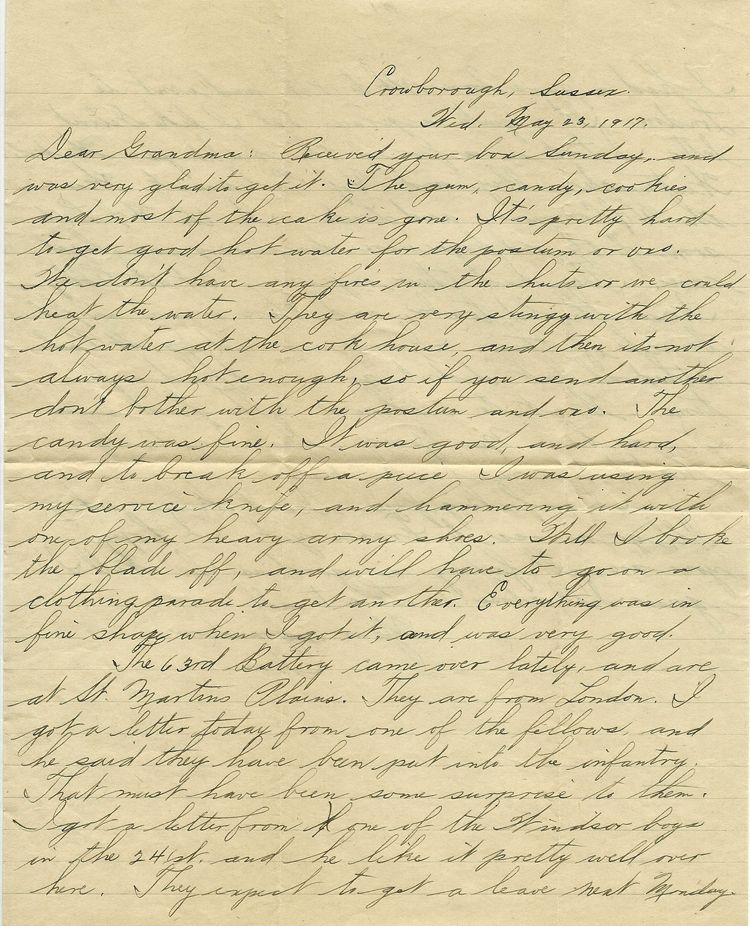 Crowborough, Sussex.
Wed. May 23, 1917.
Dear Grandma: Received your box Sunday, and
was very glad to get it. The gum, candy, cookies
and most of the cake is gone. It's pretty hard
to get good hot water for the postum or oxo.
We don't have any fires in the huts or we could
heat the water. They are very stingy with the
hot water at the cook house, and then its not
always hot enough, so if you send another
don't bother with the postum and oxo. The
candy was fine. It was good, and hard,
and to break off a piece I was using
my service knife, and hammering it with
one of my heavy army shoes. Well I broke
the blade off, and will have to go on a
clothing parade to get another. Everything was in
fine shape when I got it, and was very good.
The 63rd Battery came over lately, and are
at St. Martins Plains. They are from London. I
got a letter today from one of the fellows, and
he said they have been put into the infantry.
That must have been some surprise to them.
I got a letter from one of the Windsor boys
in the 241st. and he like it pretty well over
here. They expect to get a leave next Monday.